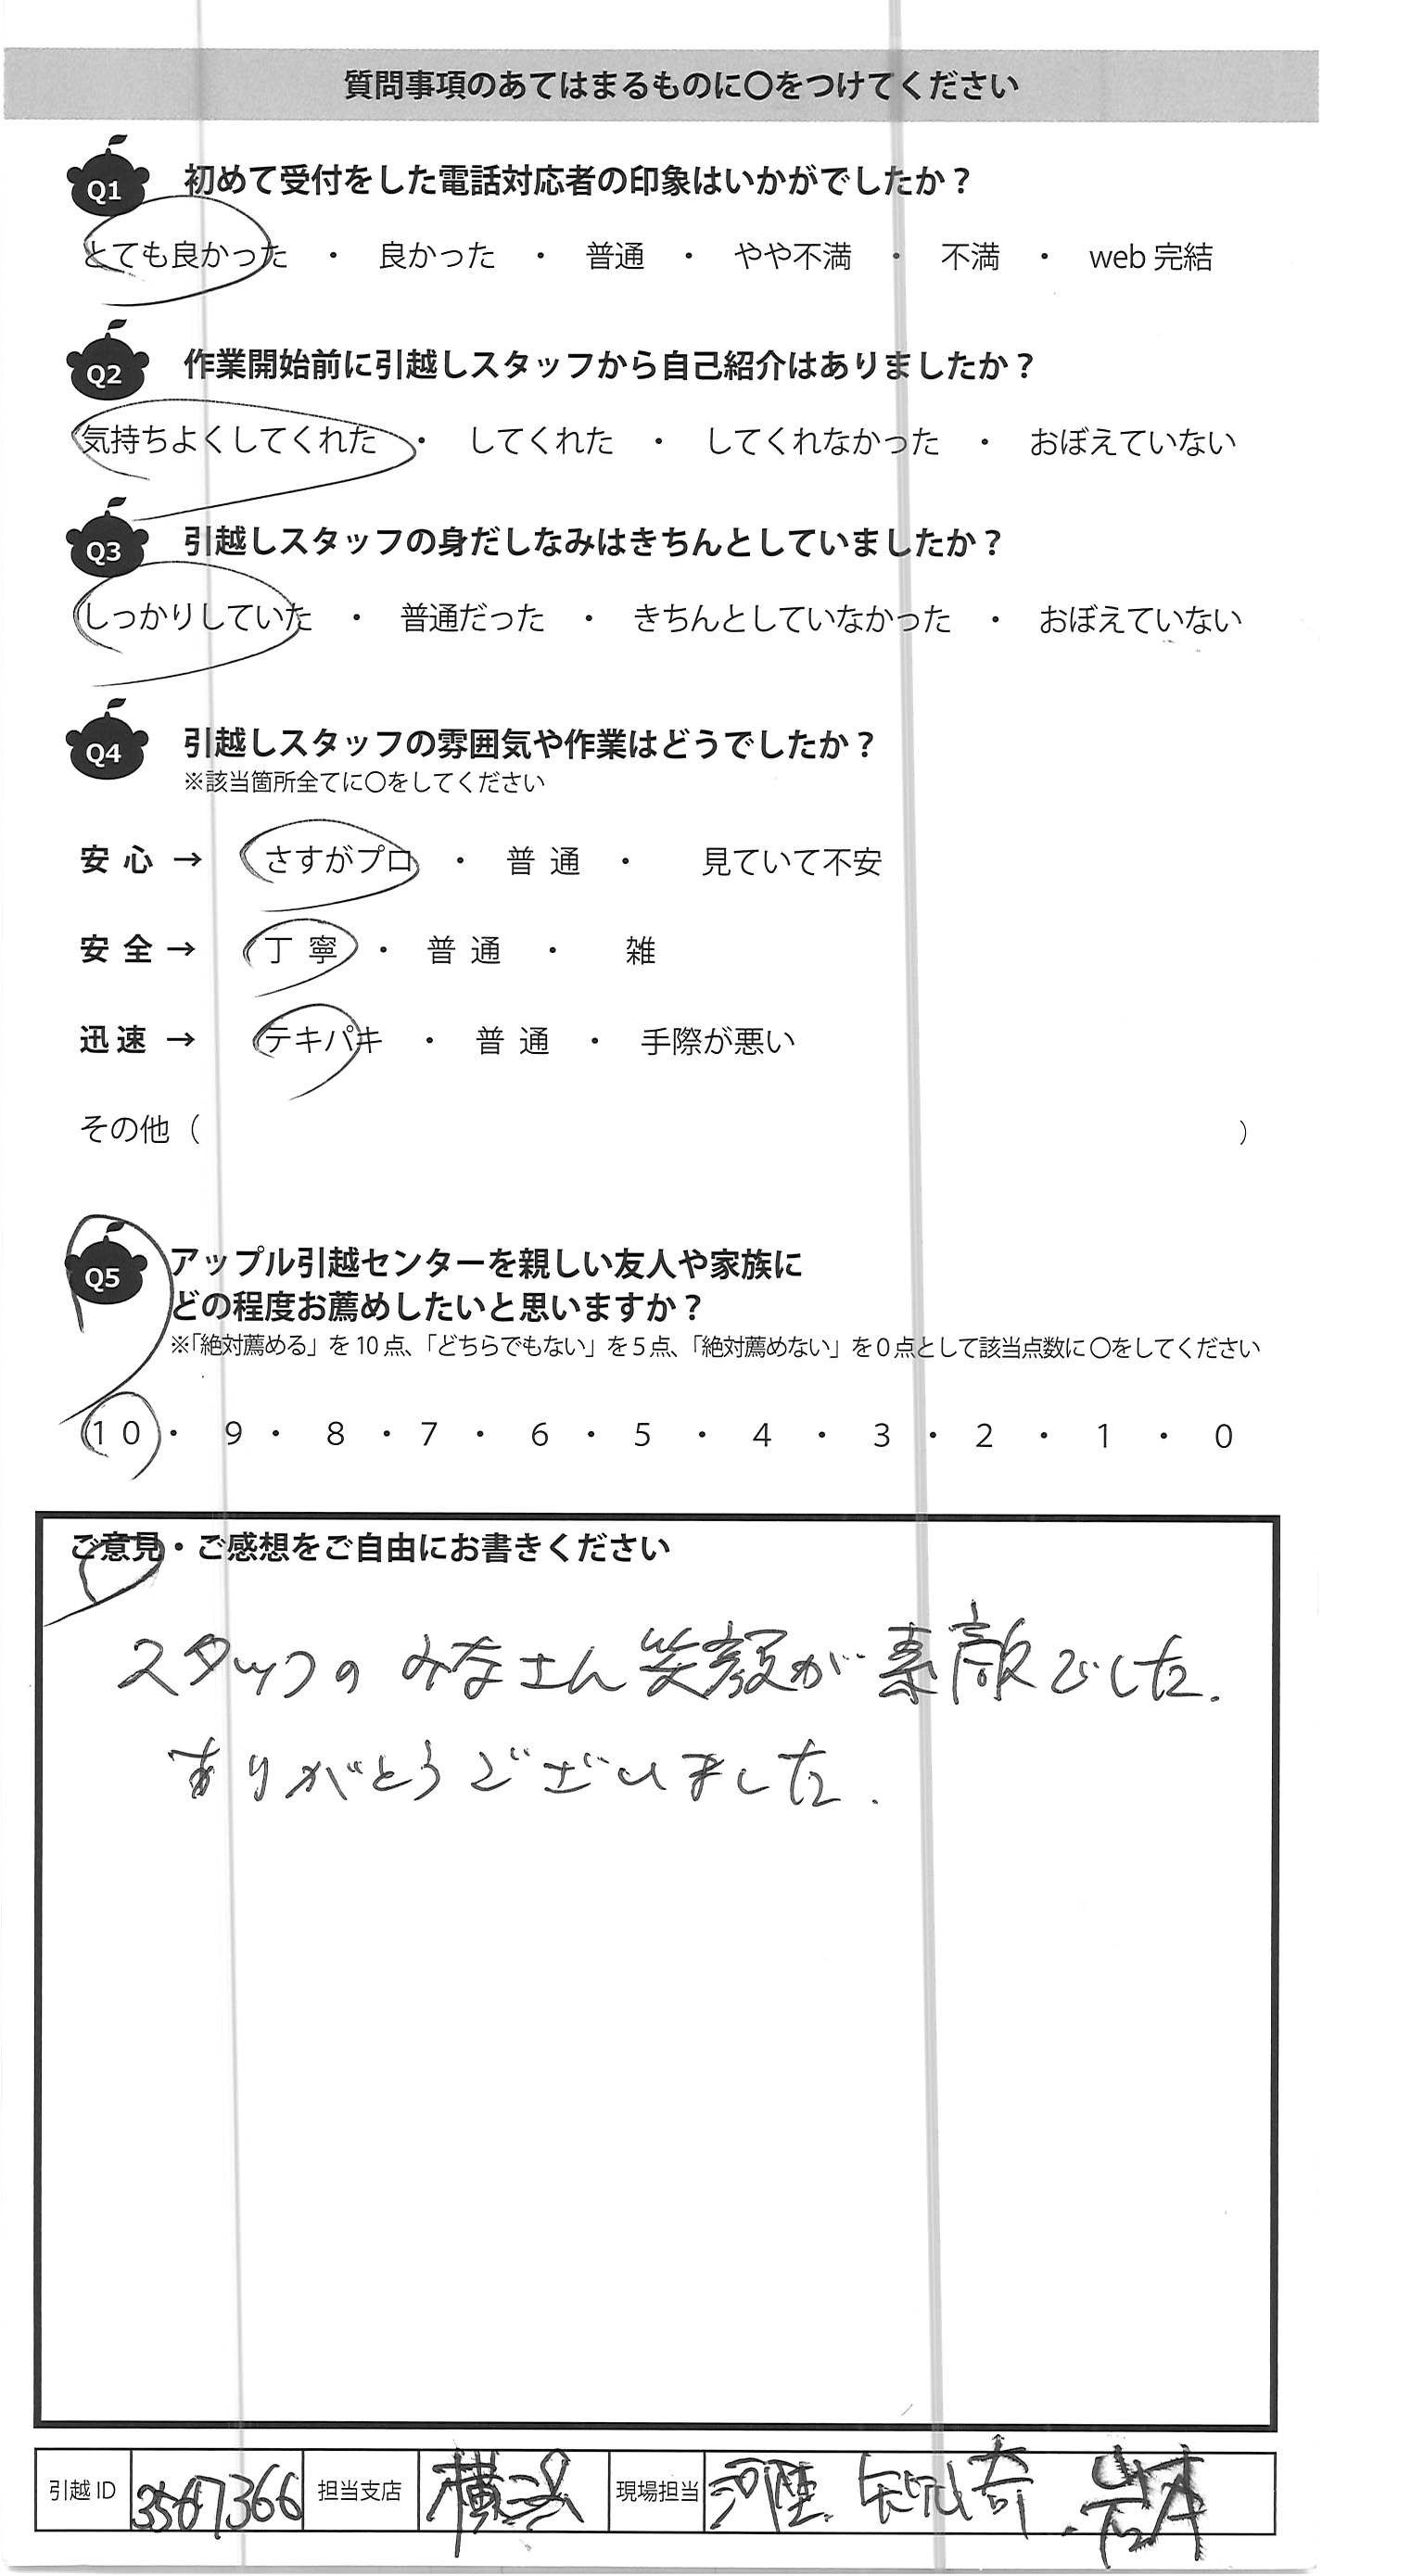 質問事項のあてはまるものに〇をつけてください
Q1 初めて受付をした電話対応者の印象はいかがでしたか？
とても良かった ・ 良かった ・ 普通 ・ やや不満 ・ 不満 ・ web 完結
Q2 作業開始前に引越しスタッフから自己紹介はありましたか？
気持ちよくしてくれた ・ してくれた ・ してくれなかった ・ おぼえていない
Q3 引越しスタッフの身だしなみはきちんとしていましたか？
しっかりしていた ・ 普通だった ・ きちんとしていなかった ・ おぼえていない
Q4 引越しスタッフの雰囲気や作業はどうでしたか？
※該当箇所全てに〇をしてください
安 心 → さすがプロ ・ 普 通 ・ 見ていて不安
安 全 → 丁 寧 ・ 普 通 ・ 雑
迅 速 → テキパキ ・ 普 通 ・ 手際が悪い
その他（ ）
Q5 アップル引越センターを親しい友人や家族に
どの程度お薦めしたいと思いますか？
※「絶対薦める」を 10 点、「どちらでもない」を 5 点、「絶対薦めない」を 0 点として該当点数に 〇をしてください
10 ・ 9 ・ 8 ・ 7 ・ 6 ・ 5 ・ 4 ・ 3 ・ 2 ・ 1 ・ 0
ご意見・ご感想をご自由にお書きください
スタッフの みなさん 笑顔が 素敵でした.
ありがとうございました.
引越 ID 3567366 担当支店 横浜 現場担当